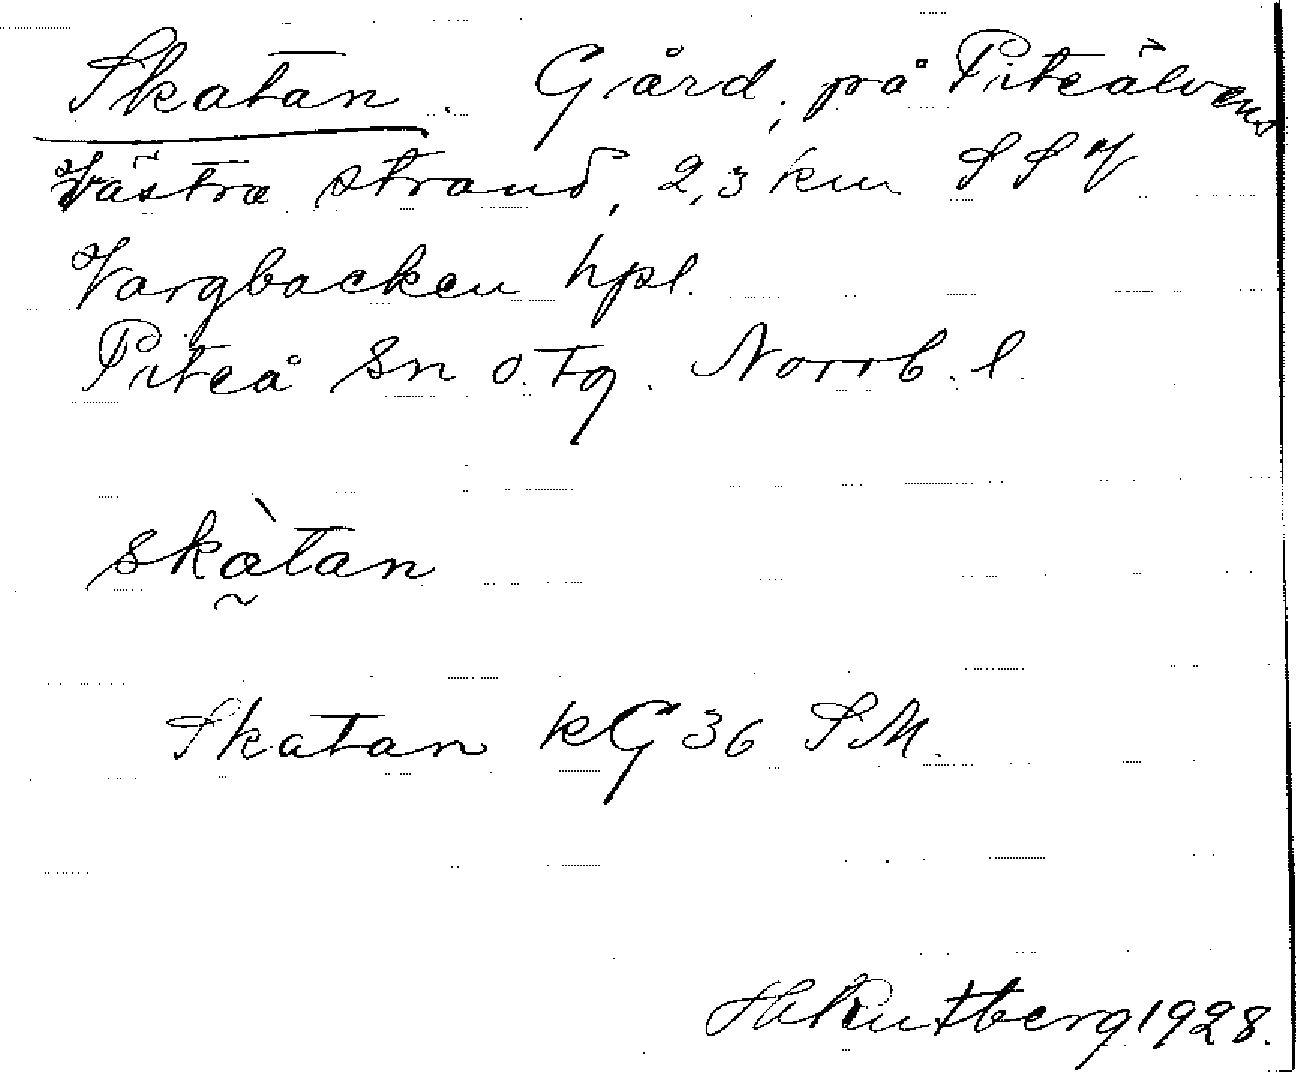 Skatan. Gård, på Piteälvens
Västra strand, 2,3 km SSV
Vargbacken hpl.
Piteå sn o. tg. Norrb. l.
skàtan
Skatan kG 36 SM.
Rutberg 1928.